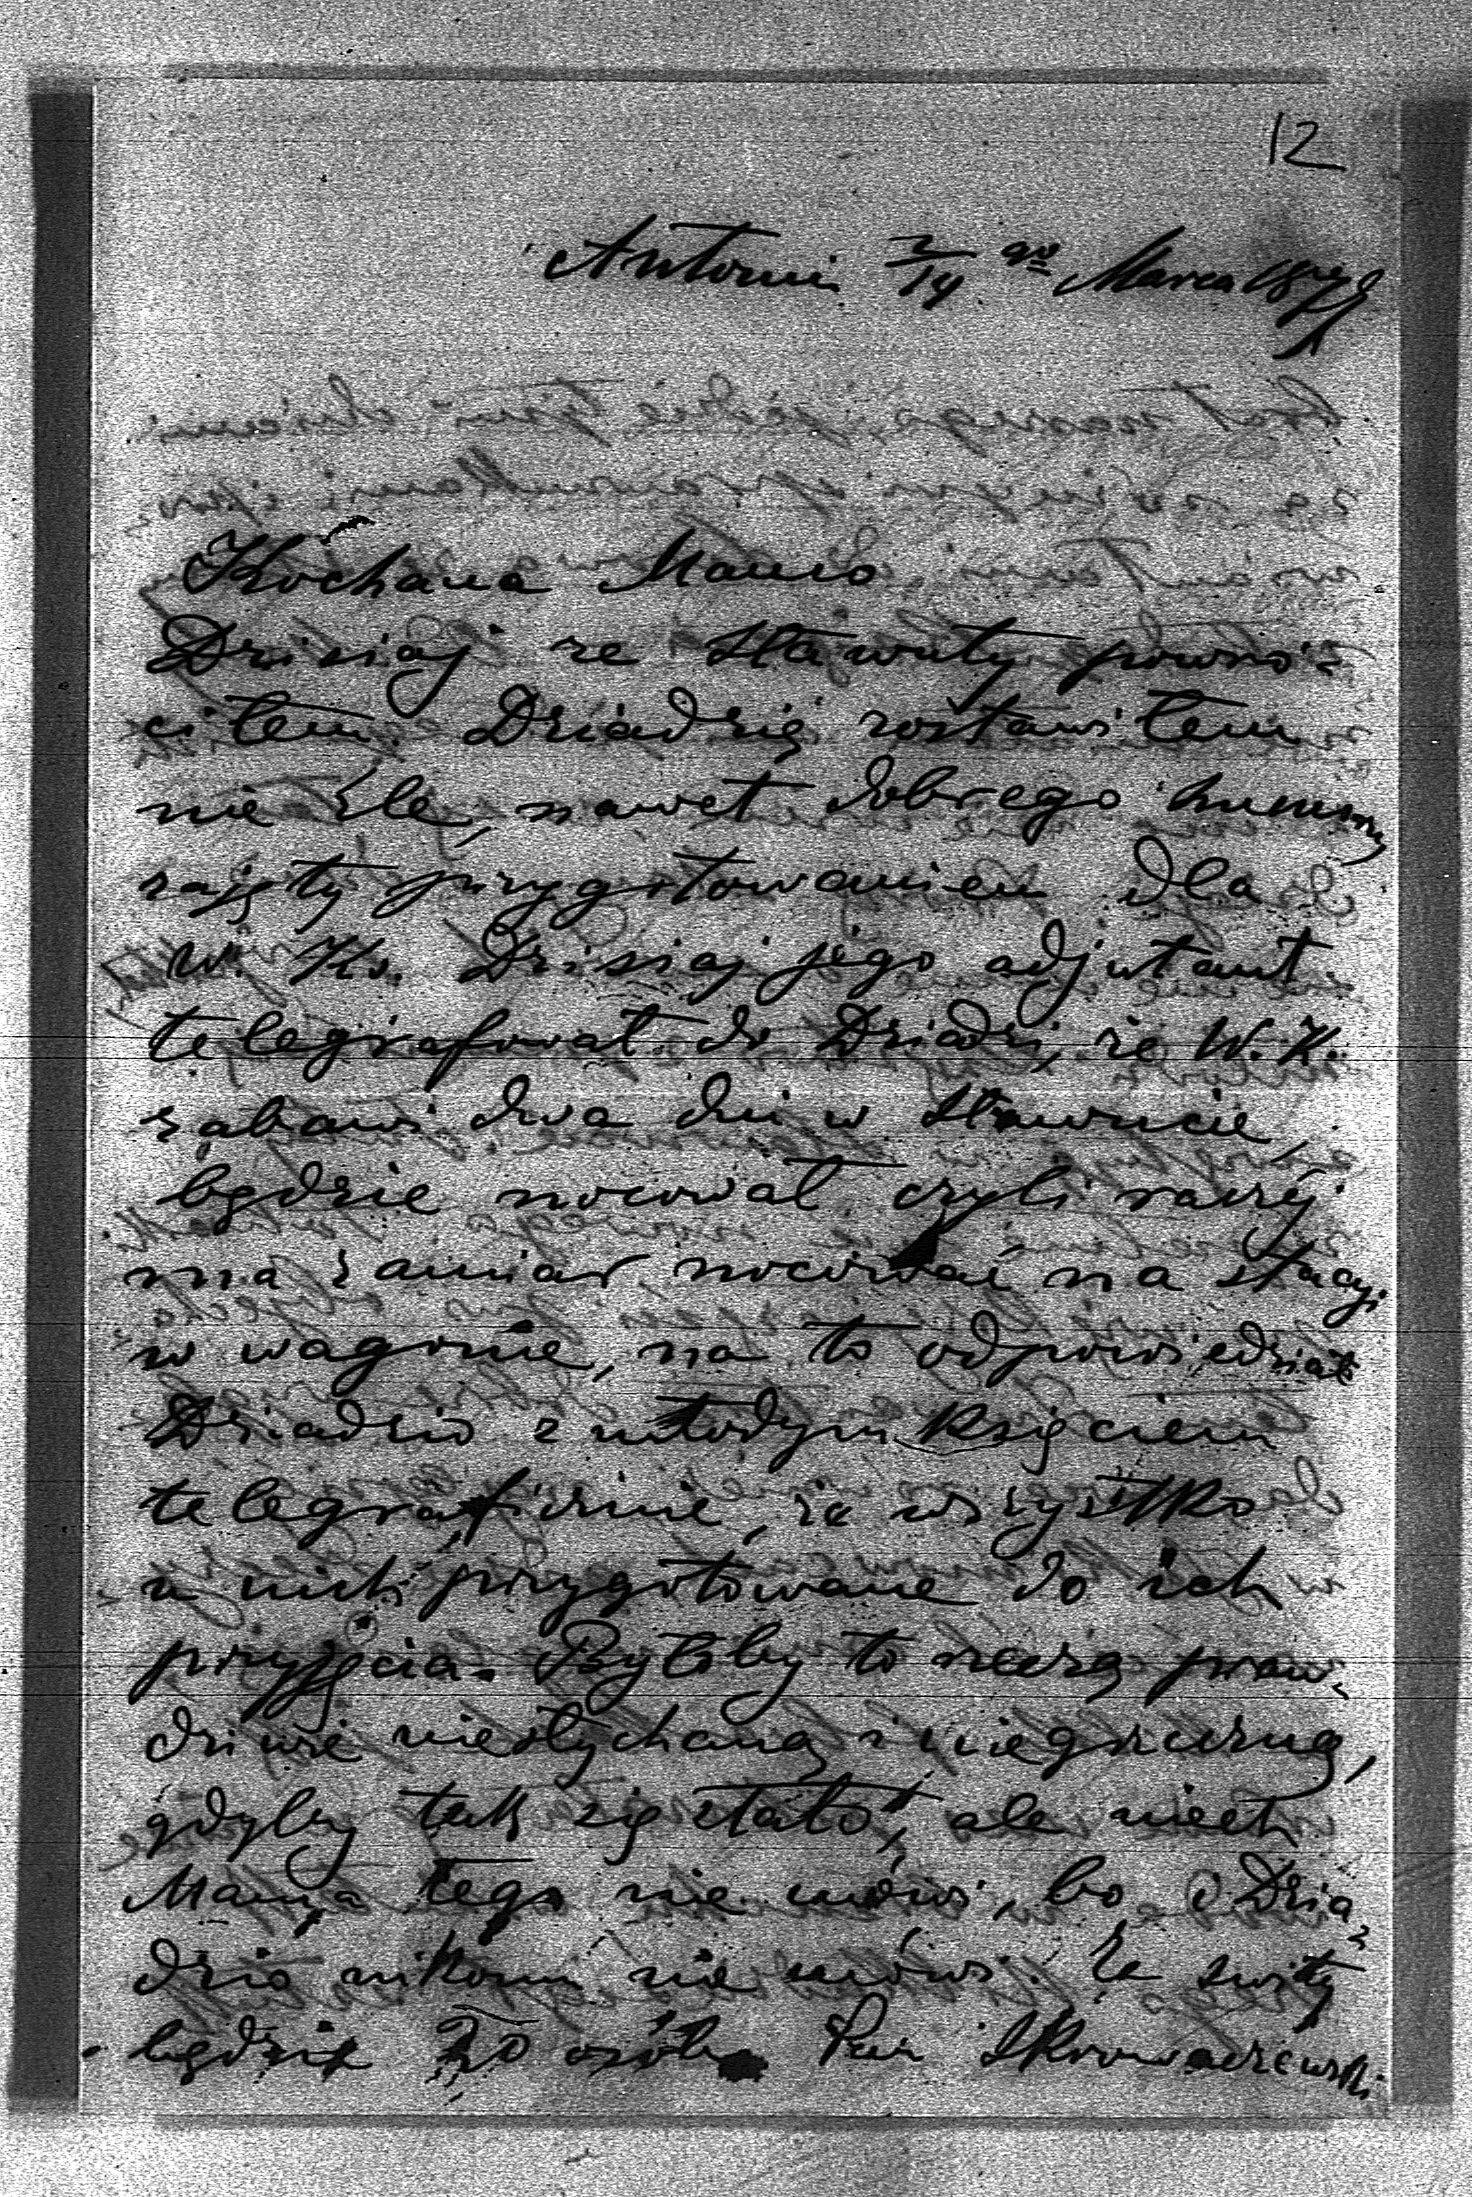 12
Antoniny 2/14 go Marca 187
Kochana Mamo
Dzisiaj ze Sławuty powró-
ciłem. Dziadzię zostawiłem
nie źle, nawet dobrego humoru
zajęty przygotowaniem dla
W. Ks. Dzisiaj jego adjutant
telegrafował do Dziadzi, że W. K.
zabawi dwa dni w Sławucie,
będzie nocował czyli raczéj
ma zamiar nocować na stacyi
w wagonie, na to odpowiedział
Dziadzio z młodym księciem
telegraficznie, że wszystko
u nich przygotowane do ich
przyjęcia. Byłoby to rzeczą praw-
dziwie niesłychaną i niegrzeczną,
gdyby tak się stało, ale niech
Mama tego nie mówi, bo i Dzia-
dzio nikomu nie mówi. Ze świtą
będzie 20 osób. Pan Skrowaczewski